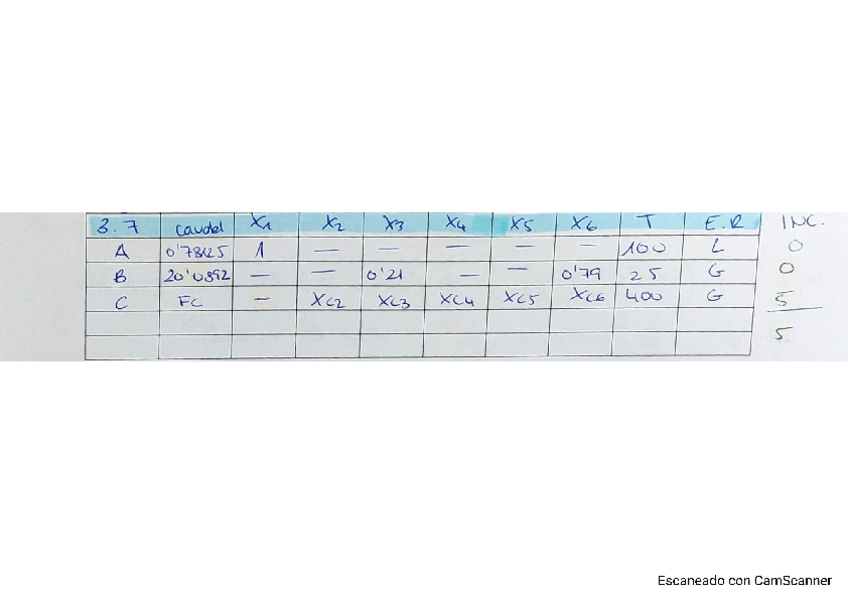 3.7 caudal X1 X2 X3 X4 X5 X6 T E.R INC.
A 0'78125 1 — — — — — 100 L 0
B 20'0892 — — 0'21 — — 0'79 25 G 0
C FC — XC2 XC3 XC4 XC5 XC6 400 G 5
5
Escaneado con CamScanner